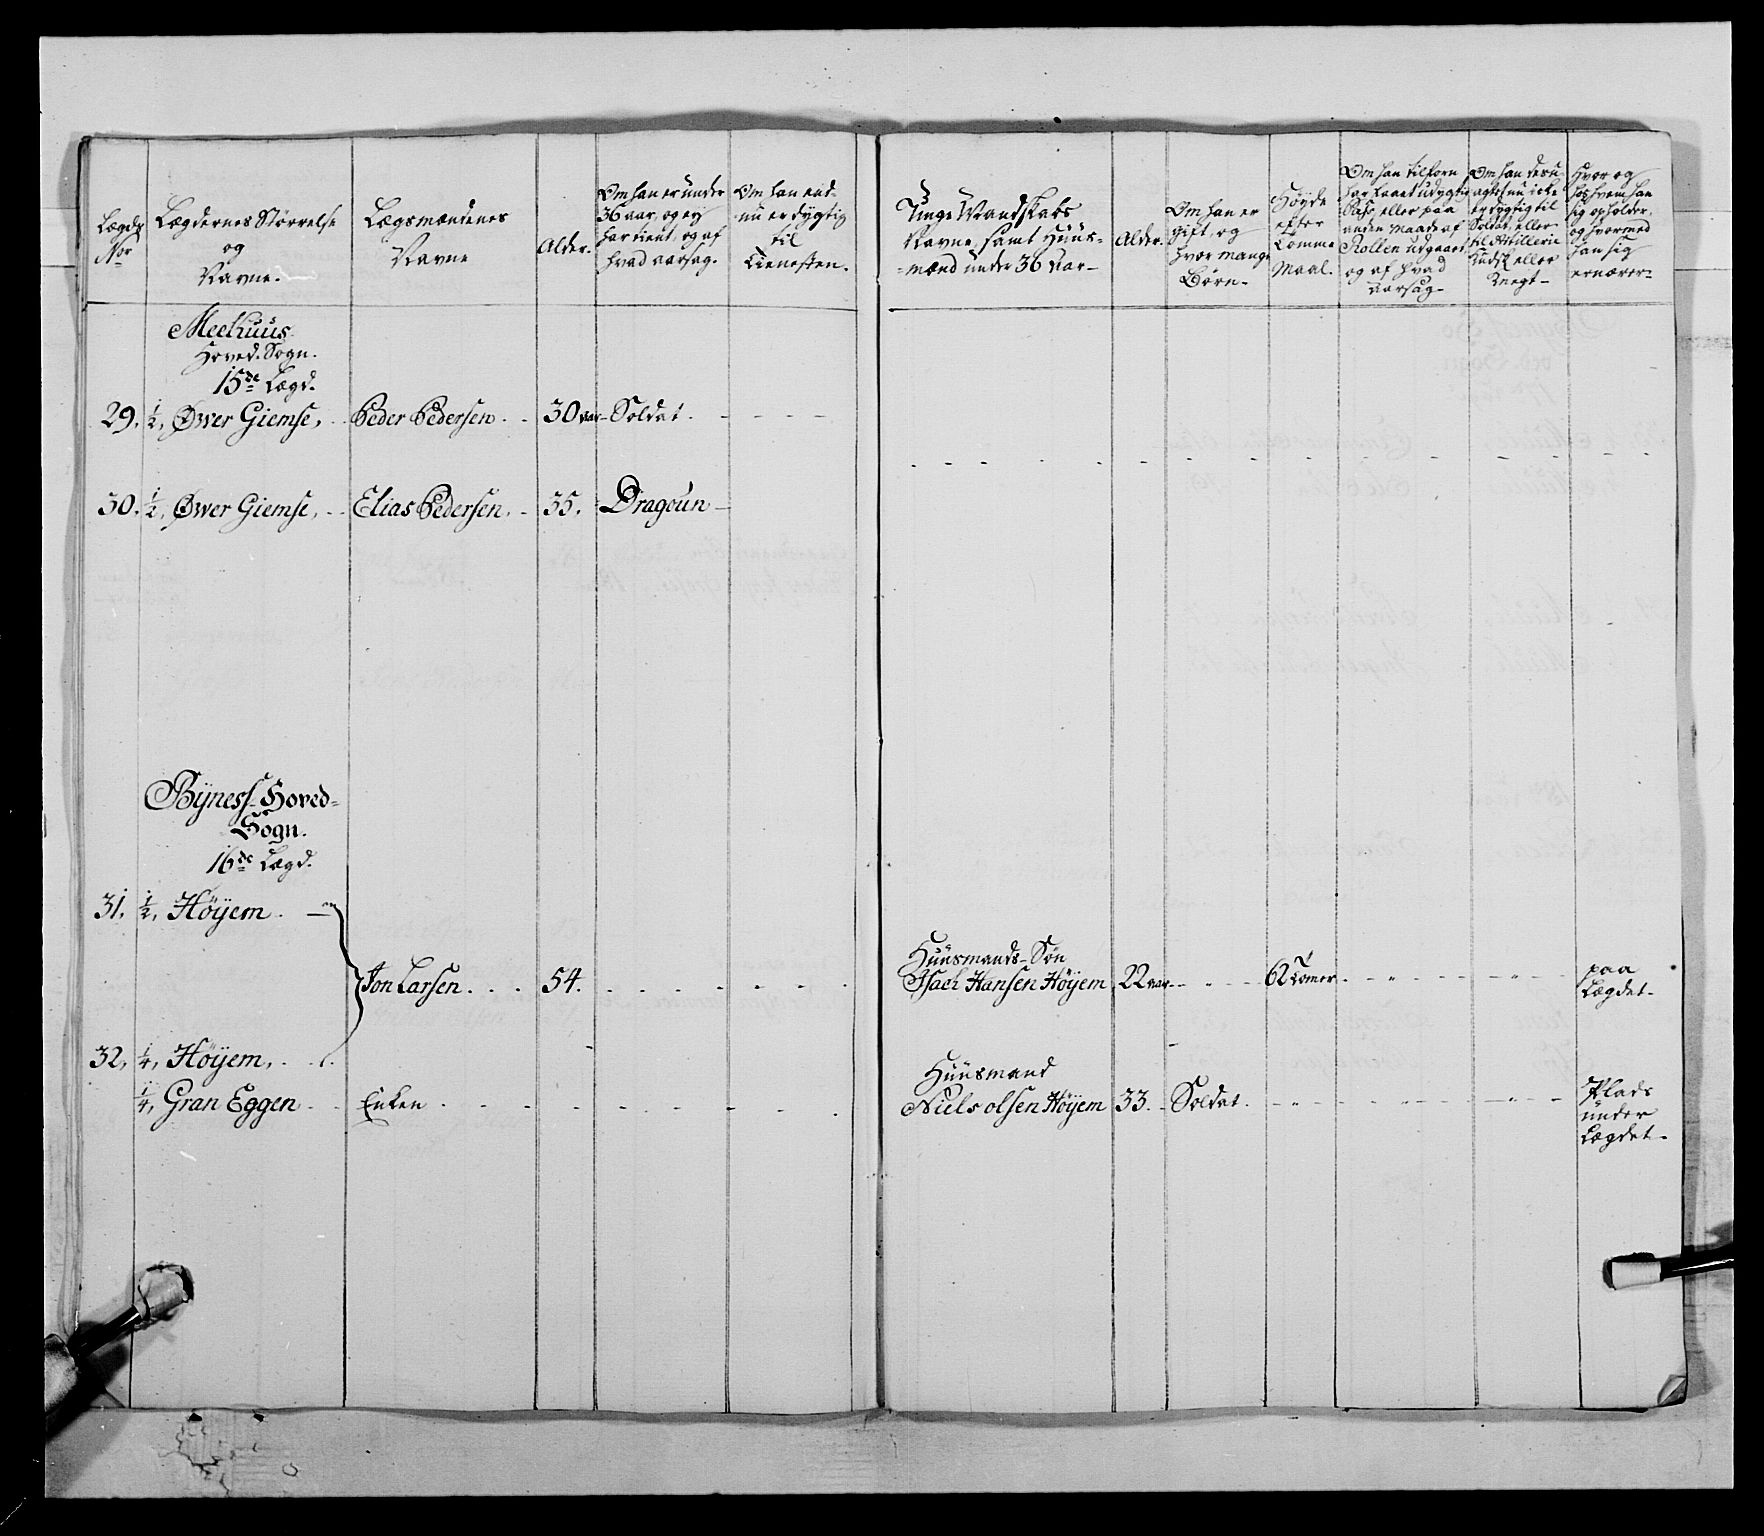 Lægds Nor
Lægdernes Størrelse
og
Navne.
Lægsmændenes
Navne
Alder.
Om han er under
36 aar, og ey
har tient, og af
hvad aarsag.
Om han end-
nu er dygtig
til
Tienesten.
Unge Mandskabs
Navne, samt Huus-
mænd under 36 aar
Alder.
Om han er
gift, og
hvor mange
Børn
Høyde
efter
Tomme
Maal.
Om han tilforn
har været udygtig
Pass, eller paa
anden Maade af
Rollen udgaaet
og af hvad
aarsag
Om han desu-
agtet nu icke
er dygtig til
Soldat, eller
til Artillerie
Kudsk eller
Knegt
Hvor og
hos hvem han
sig opholder,
og hvormed
han sig
ernærer
Meehuus
Hoved-Sogn.
15de Lægd.
29. 1/2, Øwer Giemse, Peder Pedersen. 30 aar Soldat.
30. 1/2, Øwer Giemse, Elias Pedersen, 35. Dragoun
Bÿness Hoved-
Sogn.
16de Lægd.
31. 1/2, Höÿem.
Jon Larsen. 54.
Huusmands-Søn
Isach Hansen Höÿem, 22 aar 62 Tomer. paa
Lægdet
32, 1/4, Höÿem,
1/4, Gran Eggen Enken
Huusmand
Niels olsen Höÿem 33. Soldat. Plads
under
Lægdet